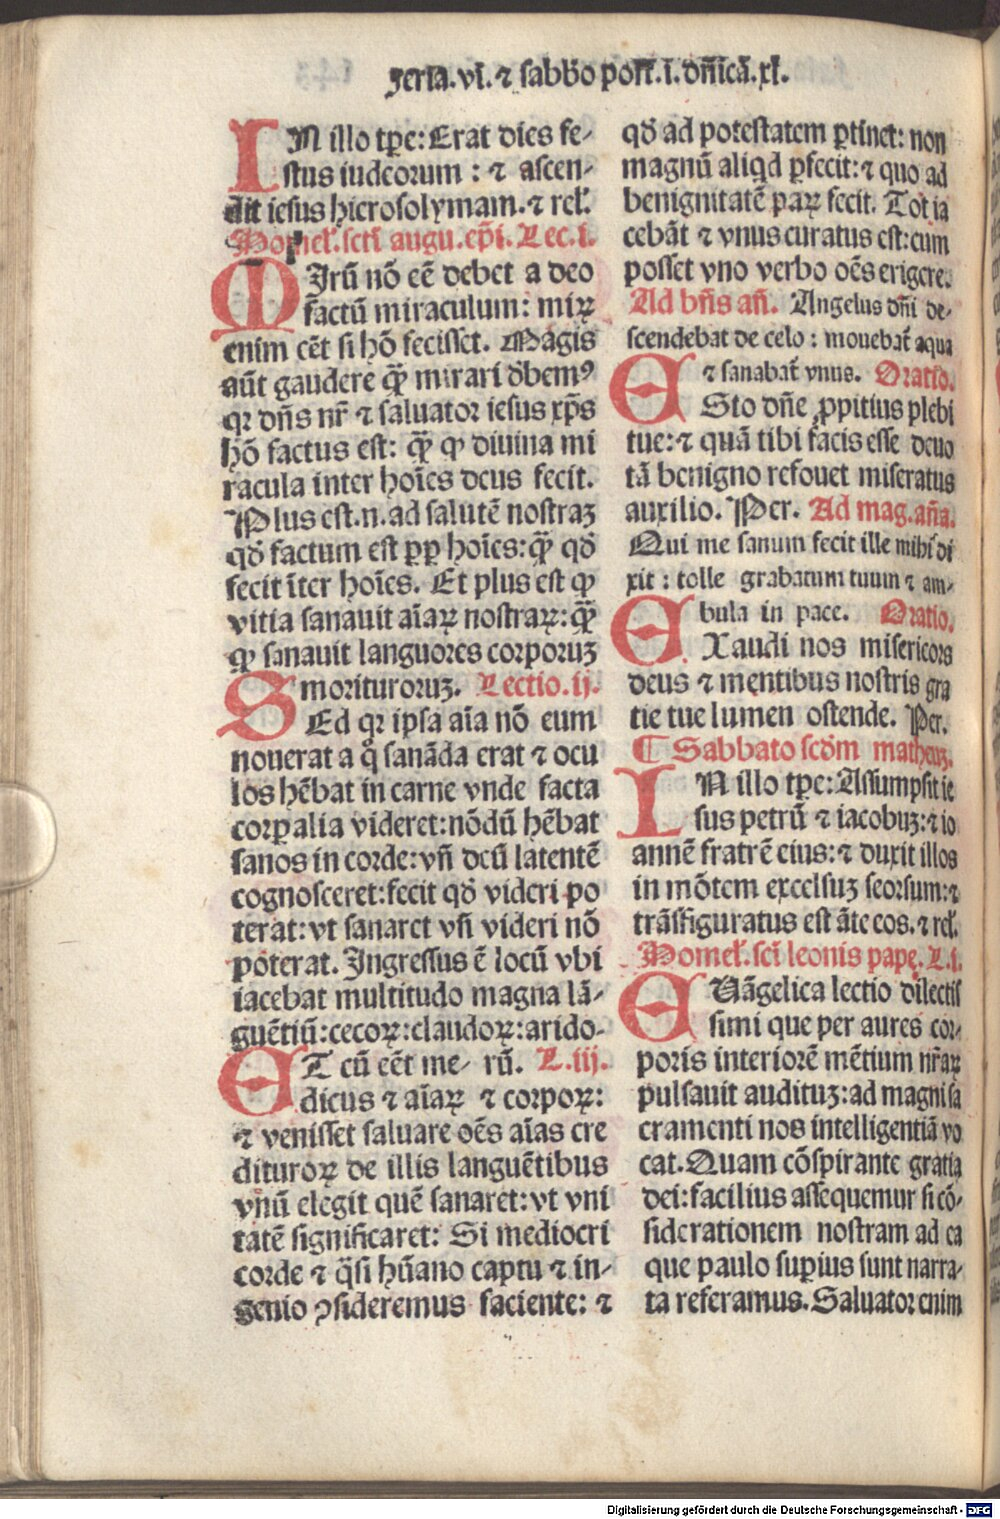 Feria.vi.⁊ sabb̄o post.i.dn̄icā.xl.
IN illo tp̄e: Erat dies fe-
stus iudeorum : ⁊ ascen-
dit iesus hierosolymam. ⁊ rel̄.
Homel̄.scti augu.ep̄i. Lec.i.
MIrū nō eē debet a deo
factū miraculum: mirꝝ
enim cēt si hō fecisset. Magis
aūt gaudere q̄ꝫ mirari dēbemꝰ
qꝛ dn̄s nr̄ ⁊ saluator iesus xp̄s
hō factus est: q̄ꝫ ꝙ diuina mi
racula inter hoīes deus fecit.
Plus est.n.ad salutē nostraꝫ
qd̄ factum est ꝓpꝑ hoīes: q̄ꝫ qd̄
fecit īter hoīes. Et plus est ꝙ
vitia sanauit aīaꝝ nostraꝝ: q̄ꝫ
ꝙ sanauit languores corporuꝫ
morituroruꝫ. Lectio.ij.
SEd qꝛ ipsa aīa nō eum
nouerat a q̄ sanāda erat ⁊ ocu
los hēbat in carne vnde facta
corꝑalia videret: nōdū hēbat
sanos in corde: vn̄ deū latentē
cognosceret: fecit qd̄ videri po
terat: vt sanaret vn̄ videri nō
poterat. Ingressus ē locū vbi
iacebat multitudo magna lā-
guētiū: cecoꝝ: claudoꝝ: arido-
ET cū eēt me- rū. L.iij.
dicus ⁊ aīaꝝ ⁊ corpoꝝ:
⁊ venisset saluare oēs aīas cre
dituroꝝ de illis languētibus
vnū elegit quē sanaret: vt vni
tatē significaret: Si mediocri
corde ⁊ q̄si hūano captu ⁊ in-
genio ꝯsideremus faciente: ⁊
qd̄ ad potestatem ꝑtinet: non
magnū aliqd ꝑfecit: ⁊ quo ad
benignitatē paꝝ fecit. Tot ia
cebāt ⁊ vnus curatus est: cum
posset vno verbo oēs erigere.
Ad bn̄s an̄. Angelus dn̄i de-
scendebat de celo : mouebat̄ aqua
⁊ sanabat̄ vnus. Oratio.
ESto dn̄e ꝓpitius plebi
tue: ⁊ quā tibi facis esse deuo
tā benigno refouet miseratus
auxilio. Per. Ad mag.an̄a.
Qui me sanum fecit ille mihi di
xit : tolle grabatum tuum ⁊ am-
bula in pace. Oratio.
EXaudi nos misericors
deus ⁊ mentibus nostris gra
tie tue lumen ostende. Per.
¶ Sabbato scd̄m matheuꝫ.
IN illo tp̄e: Assumpsit ie
sus petrū ⁊ iacobuꝫ: ⁊ io
annē fratrē eius: ⁊ duxit illos
in mōtem excelsuꝫ seorsum: ⁊
trāsfiguratus est āte eos. ⁊ rel̄.
Homel̄.sci leonis pape. L.i.
EUāgelica lectio dilectis
simi que per aures cor-
poris interiorē mētium nr̄aꝝ
pulsauit audituꝫ: ad magni sa
cramenti nos intelligentiā vo
cat. Quam cōspirante gratia
dei: facilius assequemur si cō-
siderationem nostram ad ea
que paulo suꝑius sunt narra-
ta referamus. Saluator enim
Digitalisierung gefördert durch die Deutsche Forschungsgemeinschaft - DFG